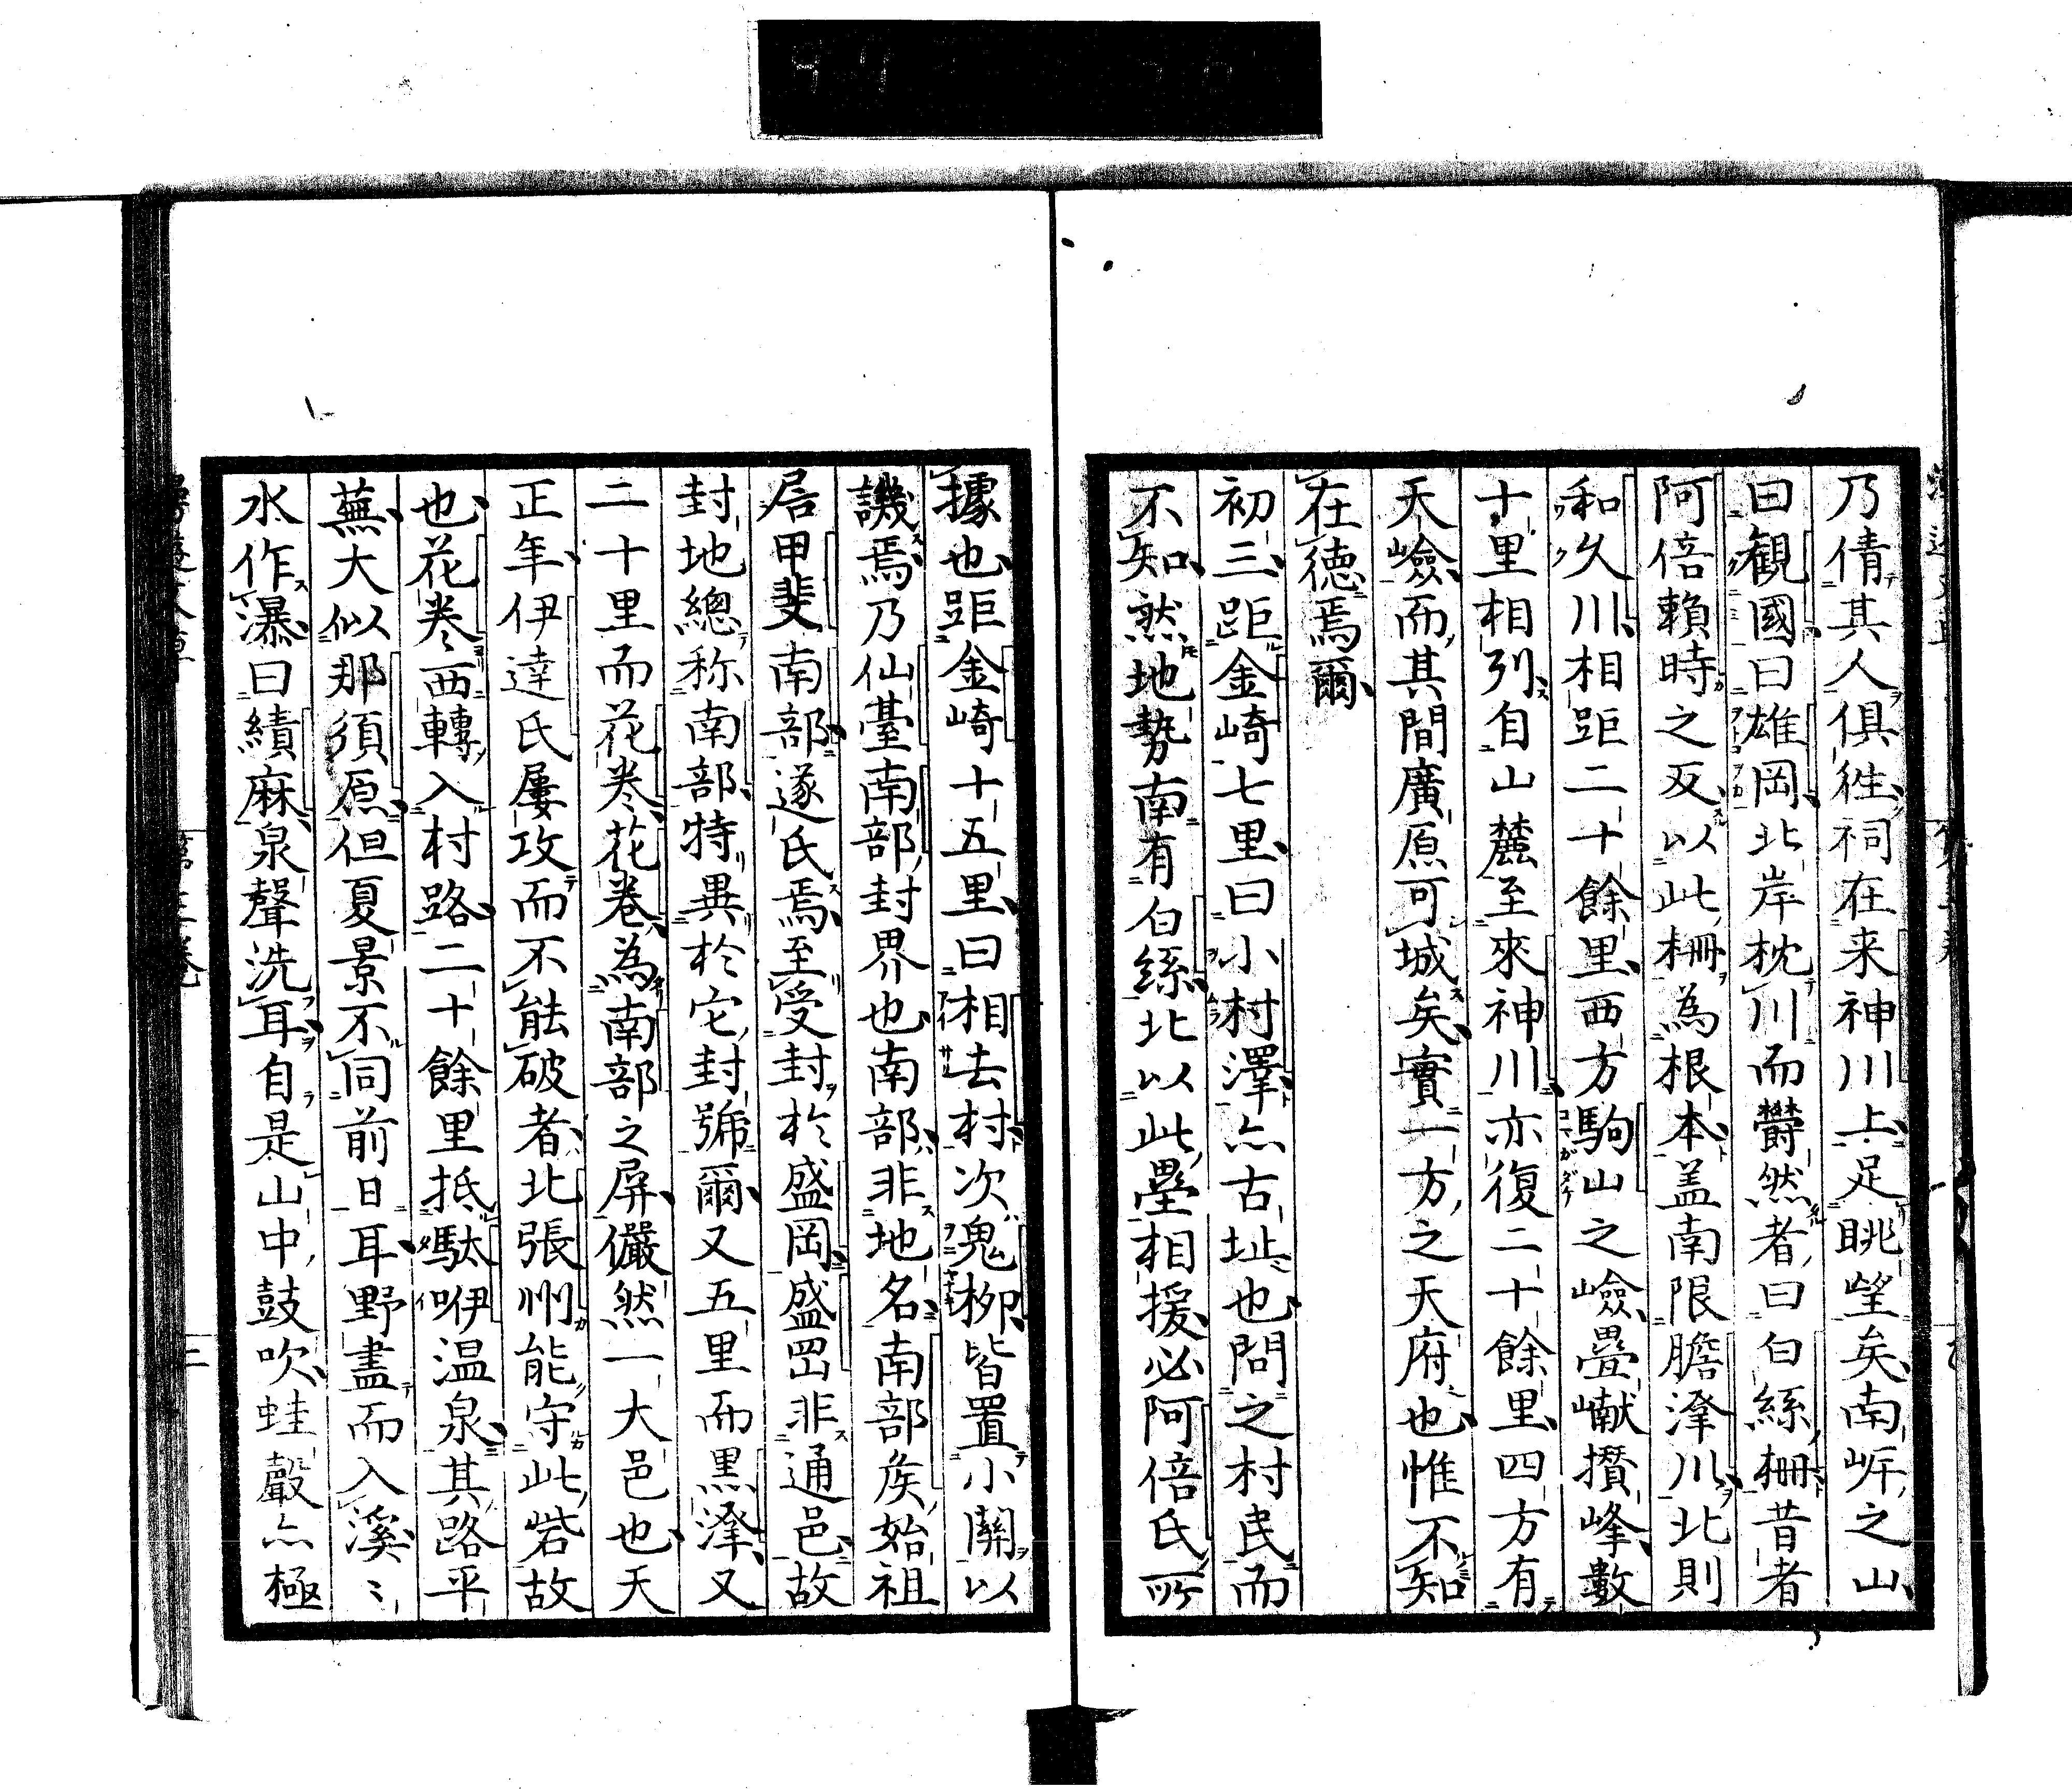 乃倩其人俱徃祠在来神川上足眺望矣南岍之山
曰観國曰雄岡北岸枕川而欝然者曰白絲柵昔者
阿倍頼時之叛以此柵為根本盖南限膽澤川北則
和久川相距二十餘里西方駒山之嶮疊巘攢峰數
十里相列自山麓至來神川亦復二十餘里四方有
天嶮而其間廣原可城矣實一方之天府也惟不知
在徳焉爾
初三距金崎七里曰小村澤亦古址也問之村民而
不知然地勢南有白絲北以此壘相援必阿倍氏所
據也距金崎十五里曰相去村次鬼柳皆置小關以
譏焉乃仙臺南部封界也南部非地名南部矦始祖
居甲斐南部遂氏焉至受封於盛岡盛岡非通邑故
封地總称南部特異於它封號爾又五里而黒澤又
二十里而花巻花巻為南部之屏儼然一大邑也天
正年伊達氏屢攻而不能破者北張州能守此砦故
也花巻西轉入村路二十餘里抵駄咿温泉其路平
蕪大似那須原但夏景不同前日耳野盡而入溪〻
水作瀑曰績麻泉聲洗耳自是山中鼓吹蛙聲亦極